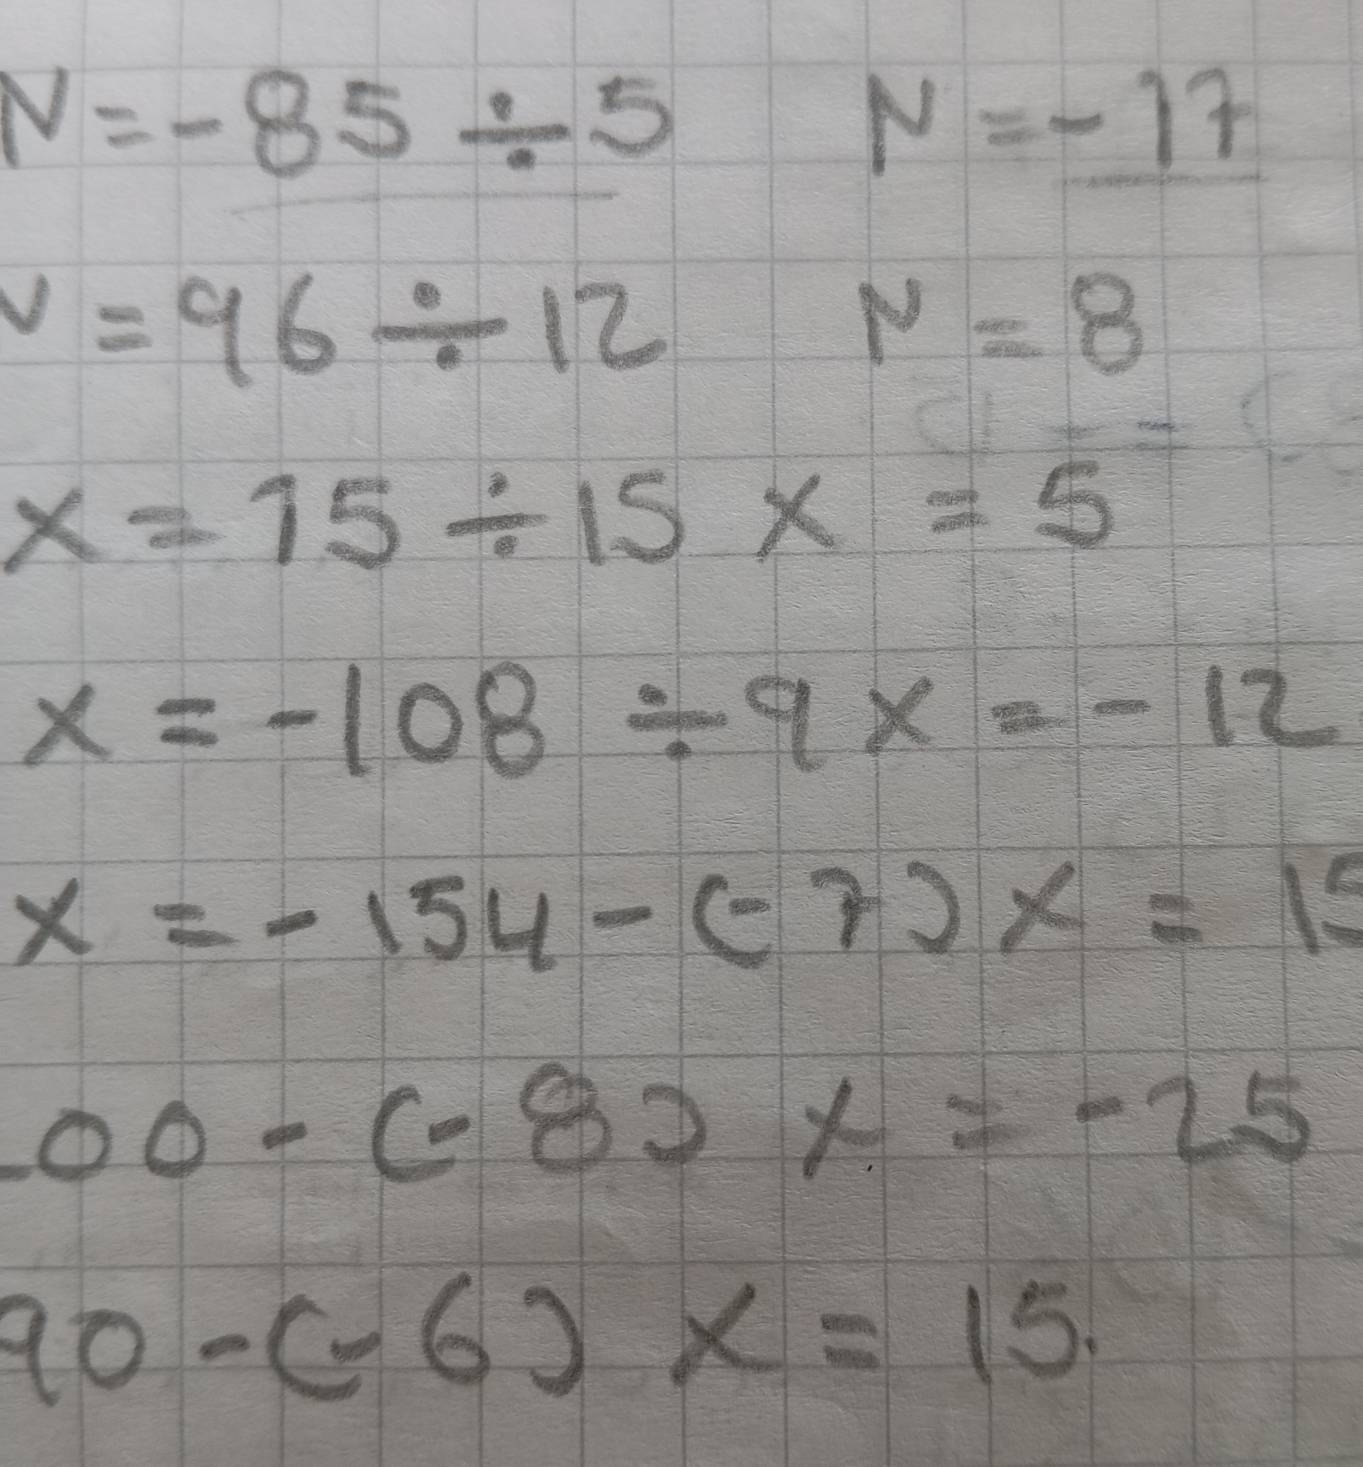 N = - 85 ÷ 5 N = - 17
N = 96 ÷ 12 N = 8
x = 75 ÷ 15 x = 5
x = -108 ÷ 9 x = - 12
x = - 154 - (-7) x = 15
00 - (- 8) x = - 25
90 - (- 6) x = 15.